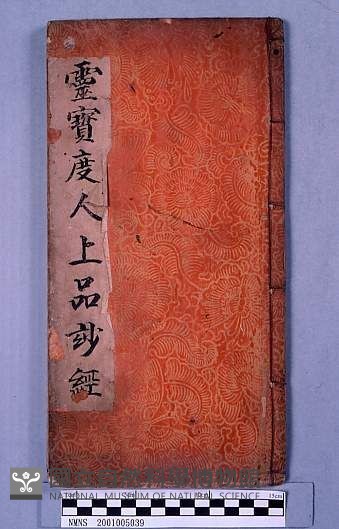 靈寶度人上品妙經
國立自然科學博物館
NATIONAL MUSEUM OF NATURAL SCIENCE
15cm
NMNS 2001005039